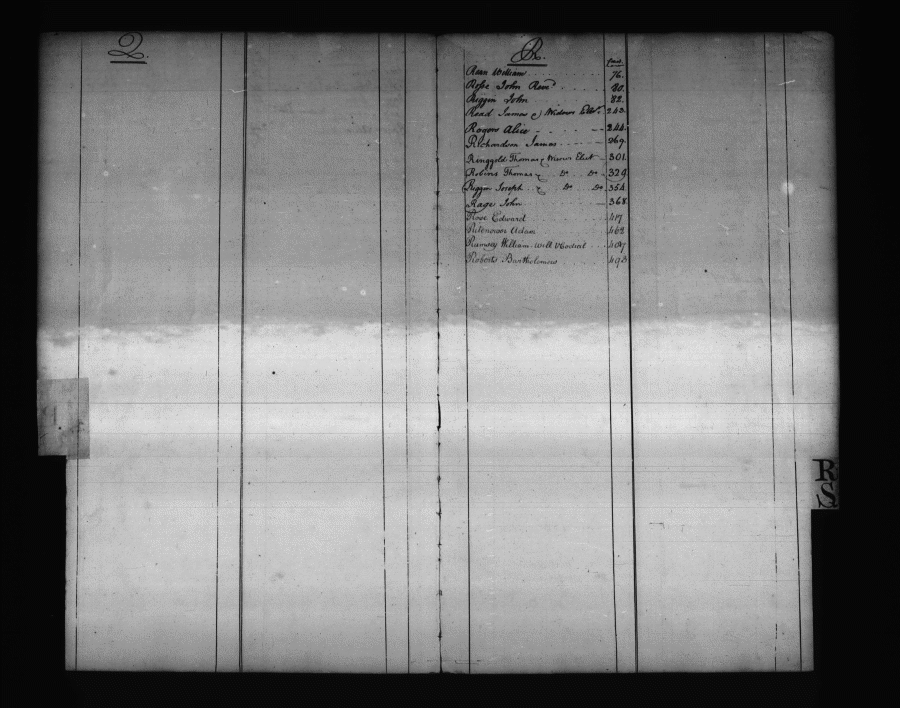 Q.
R.
Page
William 76.
Rosse John Revd 80.
Riggin John 82.
Read James & Widows Electn 243.
Rogers Alice 244
Richardson James 269.
Ringgold Thomas & Widows Elect 301.
Robins Thomas & Do Do 329
Riggin Joseph & Do Do 354
Rage John 368
Rose Edward 417
Adam 462
Ramsey William Will 487
Roberts Bartholomew 493
R
S